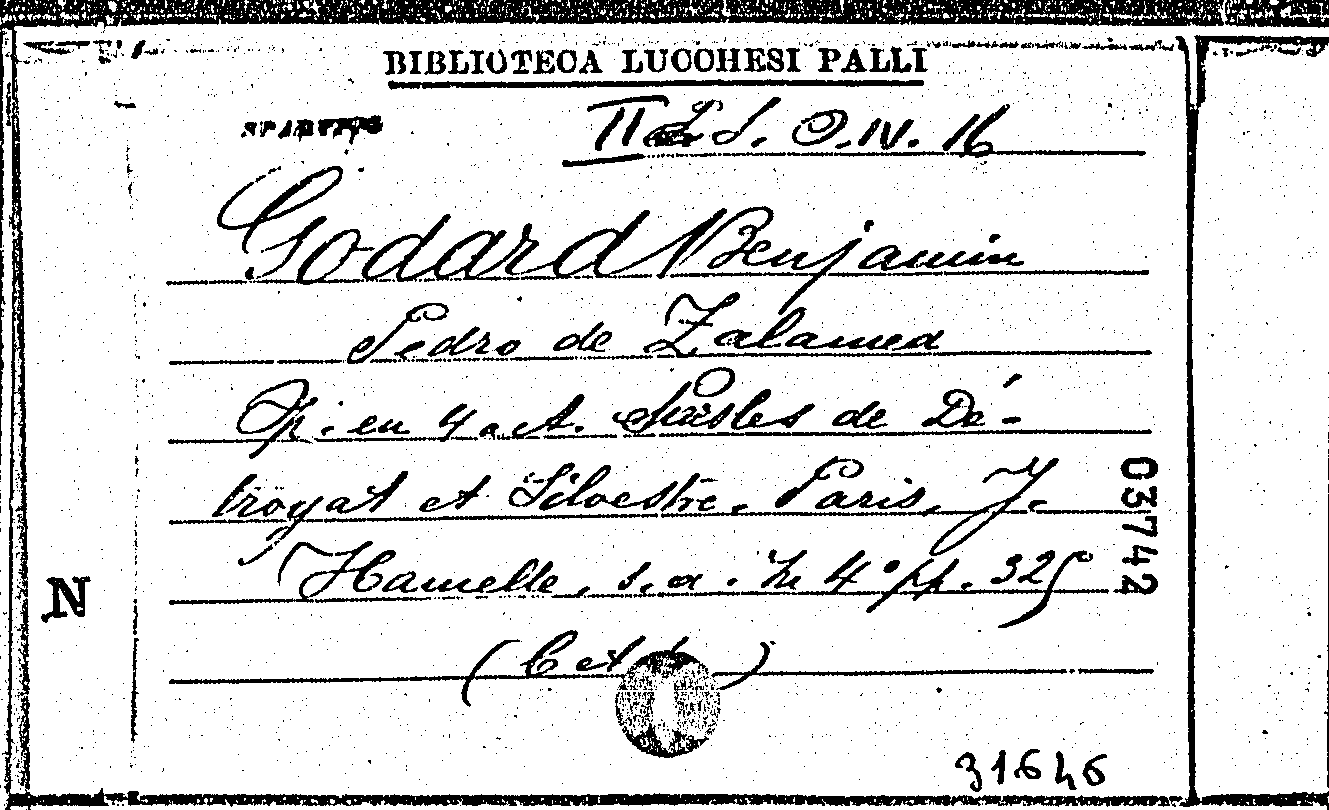 BIBLIOTECA LUCCHESI PALLI
SPARTITO
II S. O. IV. 16
Godard Benjamin
Pedro de Zalamea
Op. en 4 act. Parles de Dé-
troyat et Silvestre. Paris, J.
Hamelle, s. a. In 4° pp. 325
03742
N
31646